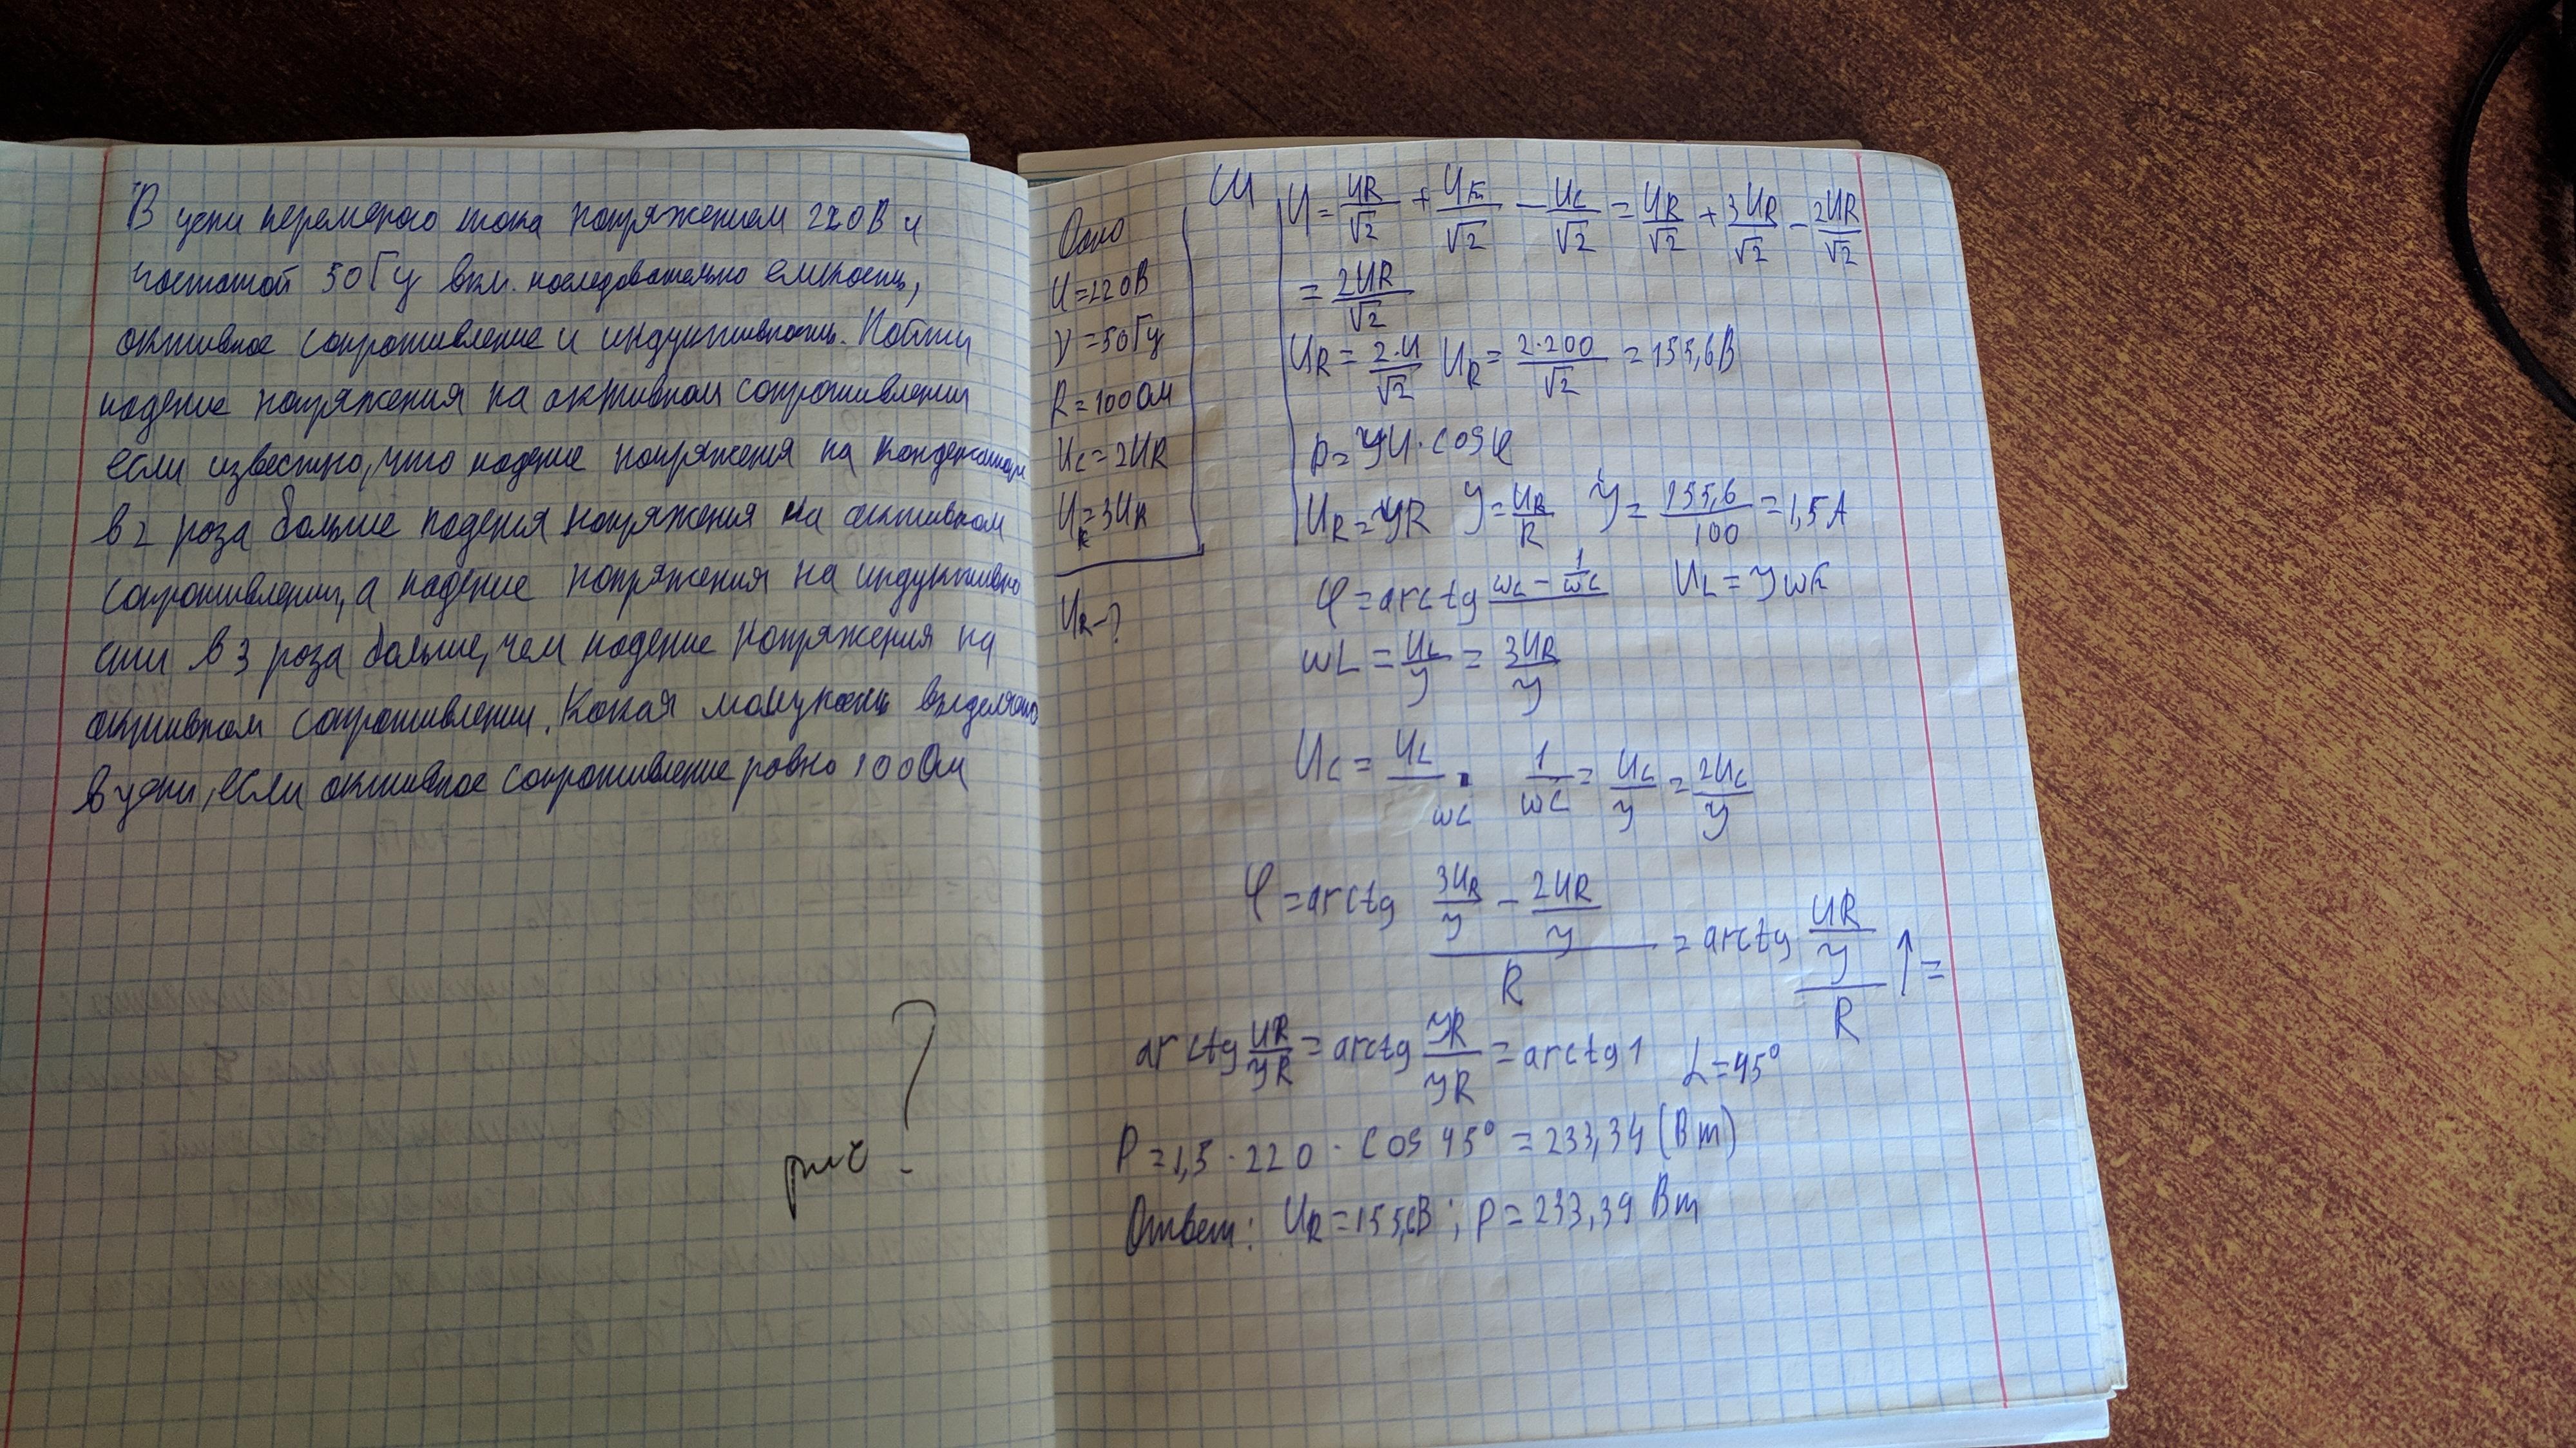 В цепи переменого тока напряжением 220В и
частотой 50Гц вкл. последовательно ёмкость,
активное сопротивление и индуктивность. Найти
падение напряжения на активном сопротивлении
если известно, что падение напряжения на конденсаторе
в 2 раза больше падения напряжения на активном
сопротивлении, а падение напряжения на индуктивно
сти в 3 раза больше, чем падение напряжения на
активном сопротивлении. Какая мощность выделяется
в цепи, если активное сопротивление равно 100Ом
рис ?
Дано
U=220В
ν=50Гц
R=100Ом
Uc=2UR
=3UR
UR-?
СИ
U = UR/√2 + /√2 - Uc/√2 = UR/√2 + 3UR/√2 - 2UR/√2
= 2UR/√2
UR = 2·U/√2 UR = 2·200/√2 = 155,6В
P = УU·cosφ
UR = УR У = UR/R У = 155,6/100 = 1,5А
φ = arctg ωL - 1/ωC UL = У
ωL = UL/У = 3UR/У
Uc = /ωC 1/ωC = Uc/У = 2Uc/У
φ = arctg (3UR/У - 2UR/У)/R = arctg (UR/У)/R ↑ =
arctg UR/УR = arctg УR/УR = arctg 1 L=45°
P = 1,5·220·cos 45° = 233,34 (Вт)
Ответ: UR = 155,6В; P = 233,39 Вт